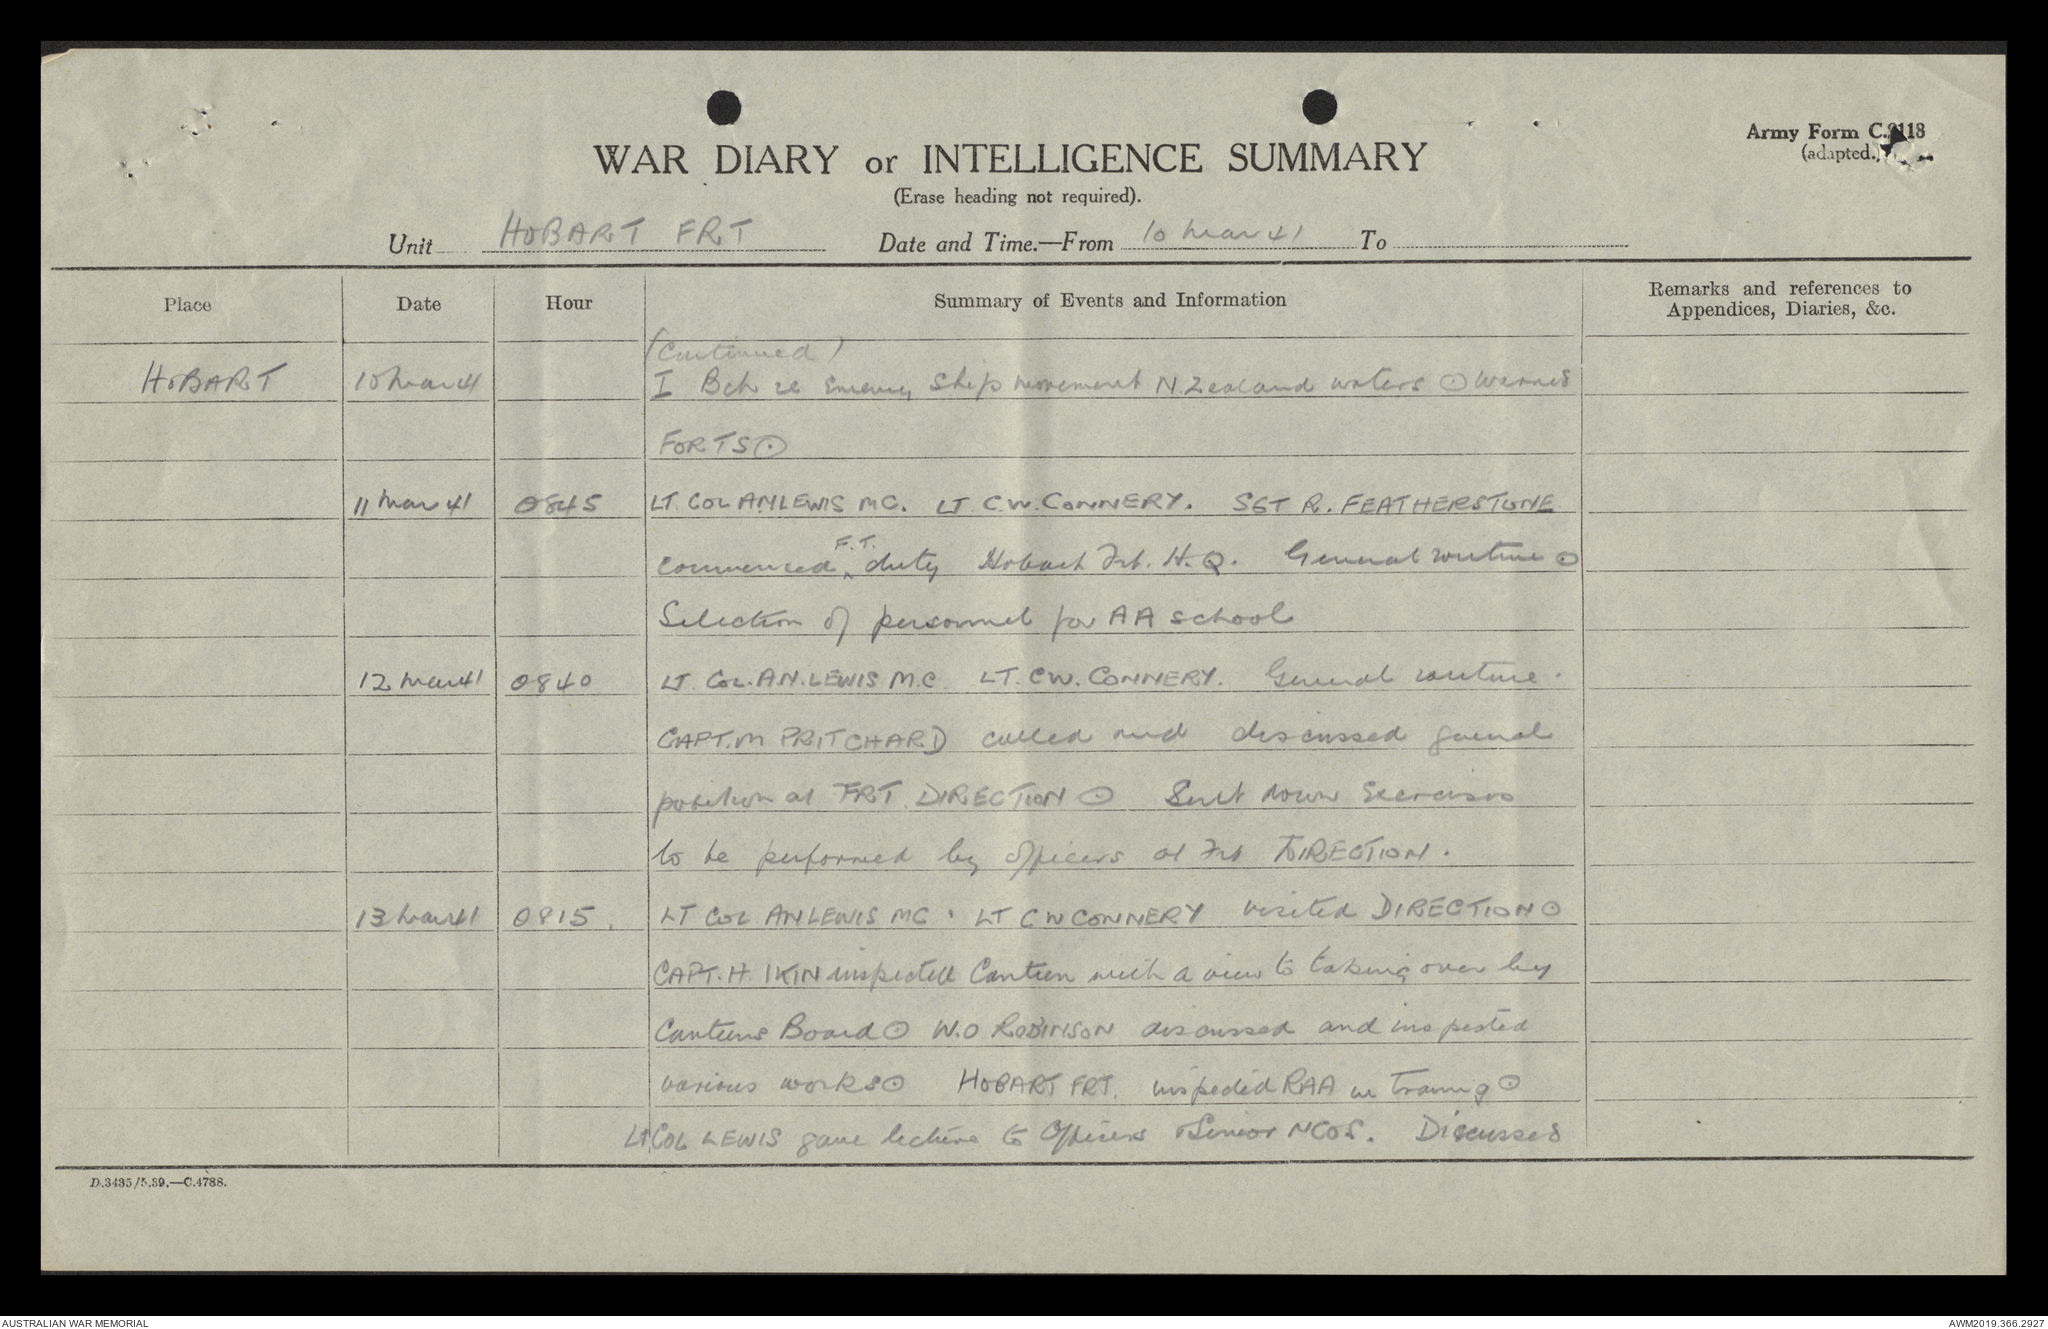 Army Form C.2118
(adapted.)
WAR DIARY or INTELLIGENCE SUMMARY
(Erase heading not required).
Unit HOBART FRT Date and Time.—From 10 Mar 41 To
Place Date Hour Summary of Events and Information Remarks and references to Appendices, Diaries, &c.
(Continued)
HOBART 10 Mar 41 I Bch re Enemy Ship movement N. Zealand waters ⊙ warned
FORTS ⊙
11 Mar 41 0845 LT. COL A.N. LEWIS MC. LT C.W. CONNERY. SGT R. FEATHERSTONE
F.T.
commenced ^ duty Hobart Frt. H.Q. General routine ⊙
Selection of personnel for AA school
12 Mar 41 0840 LT. COL. A.N. LEWIS M.C. LT. C W. CONNERY. General routine.
CAPT. M PRITCHARD called and discussed general
position at FRT. DIRECTION ⊙ Sent down Exercises
to be performed by officers at Frt DIRECTION.
13 Mar 41 0815. LT COL AN LEWIS MC. LT C W CONNERY visited DIRECTION ⊙
CAPT. H. IKIN inspected Canteen with a view to taking over by
Canteens Board ⊙ W.O ROBINSON discussed and inspected
various works ⊙ HOBART FRT. inspected RAA in Training ⊙
Lt COL LEWIS gave lecture to Officers & Senior NCOS. Discussed
D.3435/5.39.—C.4788.
AUSTRALIAN WAR MEMORIAL
AWM2019.366.2927